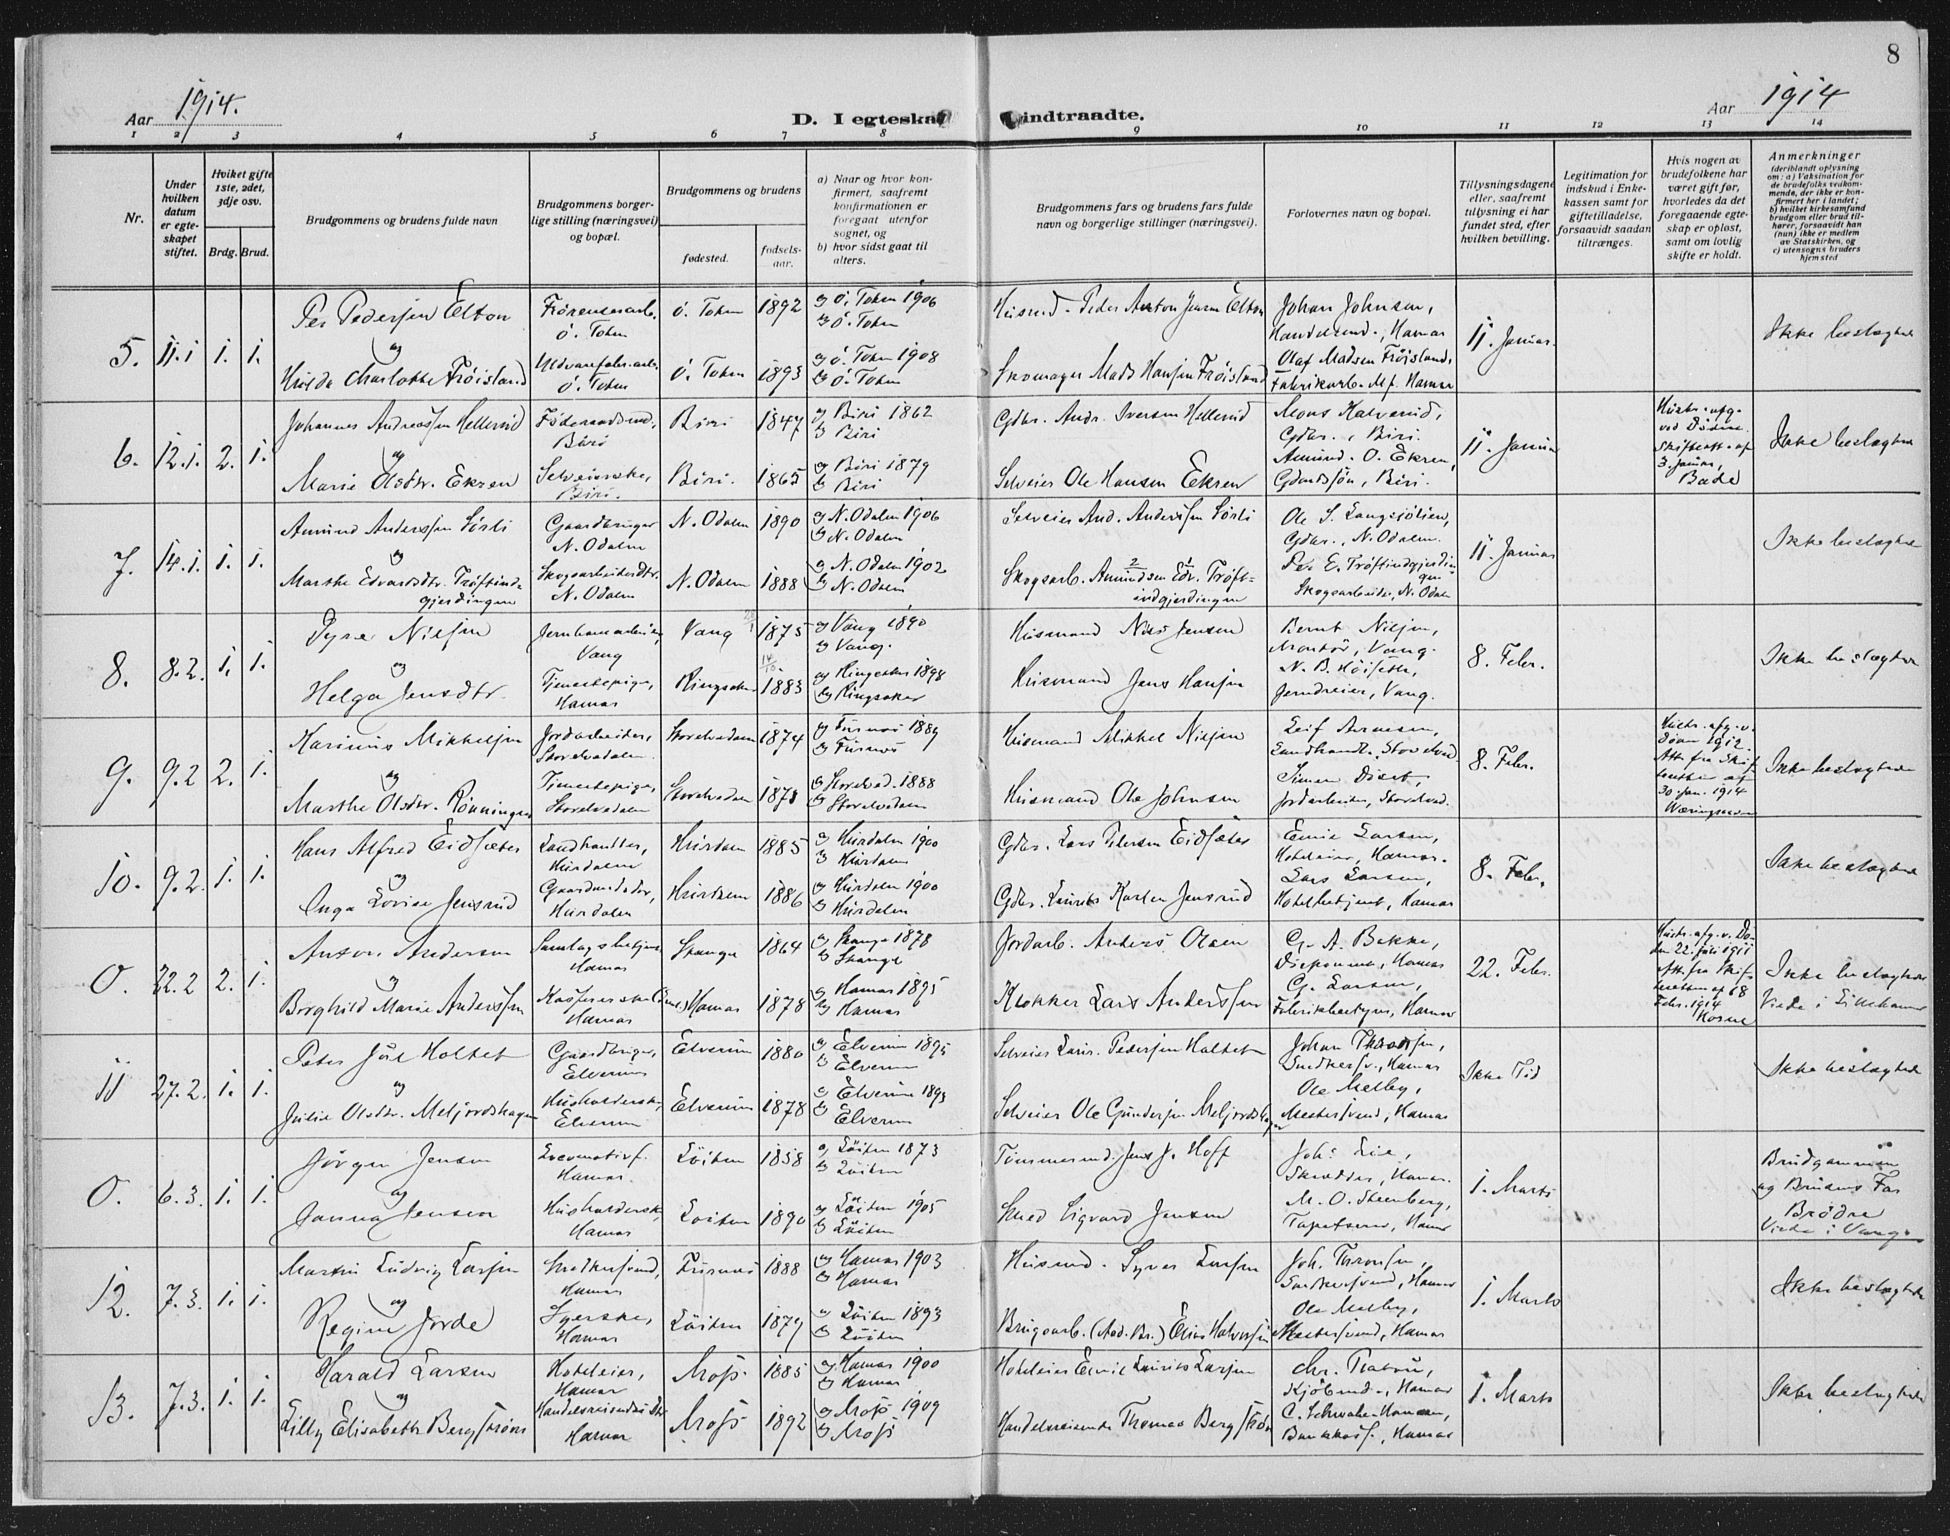 8
Aar 1914.
D. I egteska
indtraadte.
Aar 1914
1 2 3 4 5 6 7 8 9 10 11 12 13 14
Nr.
Under hvilken datum er egteskapet stiftet.
Hviket gifte 1ste, 2det, 3dje osv.
Brdg. Brud.
Brudgommens og brudens fulde navn
Brudgommens borgerlige stilling (næringsvei) og bopæl.
Brudgommens og brudens
fødested.
fødselsaar.
a) Naar og hvor konfirmert, saafremt konfirmationen er foregaat utenfor sognet, og
b) hvor sidst gaat til alters.
Brudgommens fars og brudens fars fulde navn og borgerlige stillinger (næringsvei).
Forlovernes navn og bopæl.
Tillysningsdagene eller, saafremt tillysning ei har fundet sted, efter hvilken bevilling.
Legitimation for indskud i Enkekassen samt for giftetilladelse, forsaavidt saadan tiltrænges.
Hvis nogen av brudefolkene har været gift før, hvorledes da det foregaaende egteskap er opløst, samt om lovlig skifte er holdt.
Anmerkninger
(deriblandt oplysning om: a) Vaksination for de brudefolks vedkommende, der ikke er konfirmert her i landet; b) hvilket kirkesamfund brudgom eller brud tilhører, forsaavidt han (hun) ikke er medlem av Statskirken, og c) utensogns bruders hjemsted
5. 11.1 1. 1.
Per Pedersen Elton
og
Hulda Charlotte Frøisland
Ø. Toten
Ø. Toten
Ø. Toten 1892
Ø. Toten 1893
a) Ø. Toten 1906
b) Ø. Toten
a) Ø. Toten 1908
b) Ø. Toten
Husmd. Peder Anton Jensen Elton
Skomager Mads Hansen Frøisland
Johan Johnsen,
Handelsmd., Hamar
Olaf Madsen Frøisland,
Fabrikarb. Hamar
11. Januar
Ikke beslægtede
6. 12.1. 2. 1.
Johannes Andreassen Hellerud
og
Marie Olsdtr. Ekren
Føderaadsmd., Biri
Selveierske, Biri.
Biri 1847
Biri. 1865
a) Biri 1862
b) Biri
a) Biri 1879
b) Biri
Gdbr. Andr. Iversen Hellerud
Selveier Ole Hansen Ekren
Mons Halverud,
Gdbr., Biri.
Amund O. Ekren,
Gaardssøn, Biri.
11. Januar
3. Januar,
Ikke beslægtede
7. 14.1. 1. 1.
Amund Anderssen Sørli
og
Marthe Edvardsdtr. Trøftindgjerdingen
Gaardbruger
N. Odalen
Skogsarbeiderdtr.
N. Odalen
N. Odalen 1890
N. Odalen 1888
a) N. Odalen 1906
b) N. Odalen
a) N. Odalen 1902
b) N. Odalen
Selveier And. Anderssen Sørli
Skogsarb. Amundsen Edv. Trøftindgjerdingen
Gdbr., N. Odalen.
Per E. Trøftindgjerdingen
Skogsarbeider, N. Odalen
11. Januar
Ikke beslægtede
8. 8.2. 1. 1.
Nilsen
og
Helga Jensdtr.
Vang
Tjenestepige, Hamar
Vang 1875
Ringsaker 1883
a) Vang 1890
b) Vang.
a) Ringsaker 1898
b) Ringsaker
Husmand Nils Jensen
Husmand Jens Hansen
Bernt Nilsen,
Montør, Vang.
N. B. Høiseth,
Vang.
8. Febr.
Ikke beslægtede
9. 9.2 2. 1.
Karinus Mikkelsen
og
Marthe Olsdtr. Rønningen
Jordarbeider,
Storelvedalen.
Tjenestepige,
Storelvedalen
Storelvedalen 1874
Storelvedalen 1873
a) Furnes 1889
b) Furnes
a) Storelved. 1888
b) Storelvedalen
Husmand Mikkel Nilsen
Husmand Ole Johnsen
Leif Arnesen,
Landhandl. Storelved.
Simen Diset,
Jordarbeider, Storelved.
8. Febr.
Hustr. afg. v.
Døden 1912
Att. fra Skifteretten af
30. Jan. 1914
Ikke beslægtede
10. 9.2. 1. 1.
Hans Alfred Eidsæter
og
Inga Lovise Jensrud
Landhandler,
Hurdalen
Hurdalen
Hurdalen 1885
Hurdalen 1886
a) Hurdalen 1900
b) Hurdalen
a) Hurdalen 1900
b) Hurdalen
Gdbr. Lars Petersen Eidsæter
Gdbr. Laurits Karsten Jensrud
Emil Larsen,
Hoteleier, Hamar.
Lars Larsen,
Hotelbetjent, Hamar
8. Febr.
Ikke beslægtede
0. 22.2 2. 1.
Anton Andersen
og
Borghild Marie Anderssen
Hamar
Hamar
Stange 1864
Hamar 1878
a) Stange 1878
b) Stange
a) Hamar 1895
b) Hamar
Jordarb. Anders Olsen
Klokker Lars Anderssen
G. A. Bakke,
Disponent, Hamar
G. Larsen,
Fabrikbestyrer, Hamar
22. Febr.
Hustr. afg. v. Døden 22. juli 1911
Att. fra Skifteretten af 18
Febr. 1914
Ikke beslægtede
Viede i Lillehammer
11 27.2. 1. 1.
Peter Juul Holtet
og
Julie Olsdtr. Meljordshagen
Gaardbruger,
Elverum
Husholderske,
Elverum
Elverum 1880
Elverum 1878
a) Elverum 1895
b) Elverum
a) Elverum 1893
b) Elverum
Selveier Laur. Pedersen Holtet
Selveier Ole Gundersen Meljordshagen
Johan Thronsen,
Snedkersv., Hamar
Ole Melby,
Mestersvend, Hamar
Ikke Tid
Ikke beslægtede
0. 6.3. 1. 1.
Jørgen Jensen
og
Janna Jensen
Locomotivf.
Hamar.
Husholderske,
Hamar
Løiten 1858
Løiten 1890
a) Løiten 1873
b) Løiten
a) Løiten 1905
b) Løiten
Tømmermd. Jens J. Hoff
Smed Sigvard Jensen
Joh. Lie,
Skrædder, Hamar.
M. O. Steenberg,
Tapetserer, Hamar
1. Marts
Brudgommen
og Brudens Far
Brødre
Viede i Vang.
12. 7.3. 1. 1.
Martin Ludvig Larsen
og
Regine Jorde
Snedkersvend,
Hamar
Syerske,
Hamar
Furnes 1888
Løiten 1879
a) Hamar 1903
b) Hamar
a) Løiten 1893
b) Løiten
Husmd. Syver Larsen
Brugsarb. (Aad. Br.) Elias Halvorsen
Joh. Thronsen,
Snedkersvend, Hamar
Ole Melby,
Mestersvend, Hamar
1. Marts
Ikke beslægtede
13. 7.3. 1. 1.
Harald Larsen
og
Lilly Elisabeth Bergstrøm
Hoteleier,
Hamar
Handelsreisendesdtr.
Hamar
Moss 1885
Moss 1892
a) Hamar 1900
b) Hamar
a) Moss 1909
b) Moss
Hoteleier Emil Laurits Larsen
Handelsreisende Thomas Bergstrøm
Kjøbmd., Hamar
Bankkass., Hamar
1. Marts
Ikke beslægtede